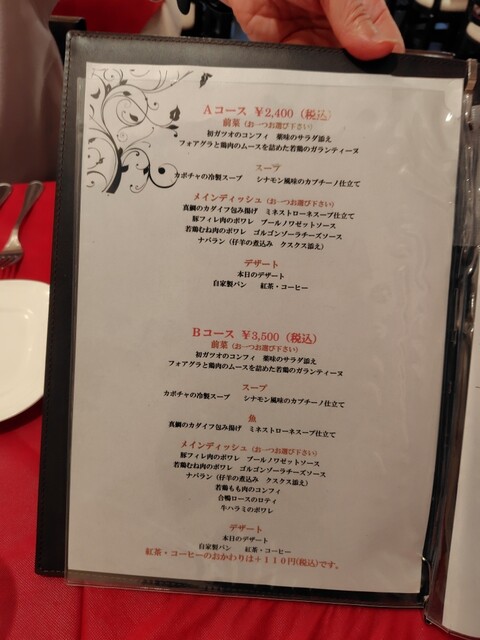 Aコース ¥2,400（税込）
前菜（お一つお選び下さい）
初ガツオのコンフィ　薬味のサラダ添え
フォアグラと鶏肉のムースを詰めた若鶏のガランティーヌ
スープ
カボチャの冷製スープ　シナモン風味のカプチーノ仕立て
メインディッシュ（お一つお選び下さい）
真鯛のカダイフ包み揚げ　ミネストローネスープ仕立て
豚フィレ肉のポワレ　ブールノワゼットソース
若鶏むね肉のポワレ　ゴルゴンゾーラチーズソース
ナバラン（仔羊の煮込み　クスクス添え）
デザート
本日のデザート
自家製パン　紅茶・コーヒー
Bコース ¥3,500（税込）
前菜（お一つお選び下さい）
初ガツオのコンフィ　薬味のサラダ添え
フォアグラと鶏肉のムースを詰めた若鶏のガランティーヌ
スープ
カボチャの冷製スープ　シナモン風味のカプチーノ仕立て
魚
真鯛のカダイフ包み揚げ　ミネストローネスープ仕立て
メインディッシュ（お一つお選び下さい）
豚フィレ肉のポワレ　ブールノワゼットソース
若鶏むね肉のポワレ　ゴルゴンゾーラチーズソース
ナバラン（仔羊の煮込み　クスクス添え）
若鶏もも肉のコンフィ
合鴨ロースのロティ
牛ハラミのポワレ
デザート
本日のデザート
自家製パン　紅茶・コーヒー
紅茶・コーヒーのおかわりは＋110円(税込)です。